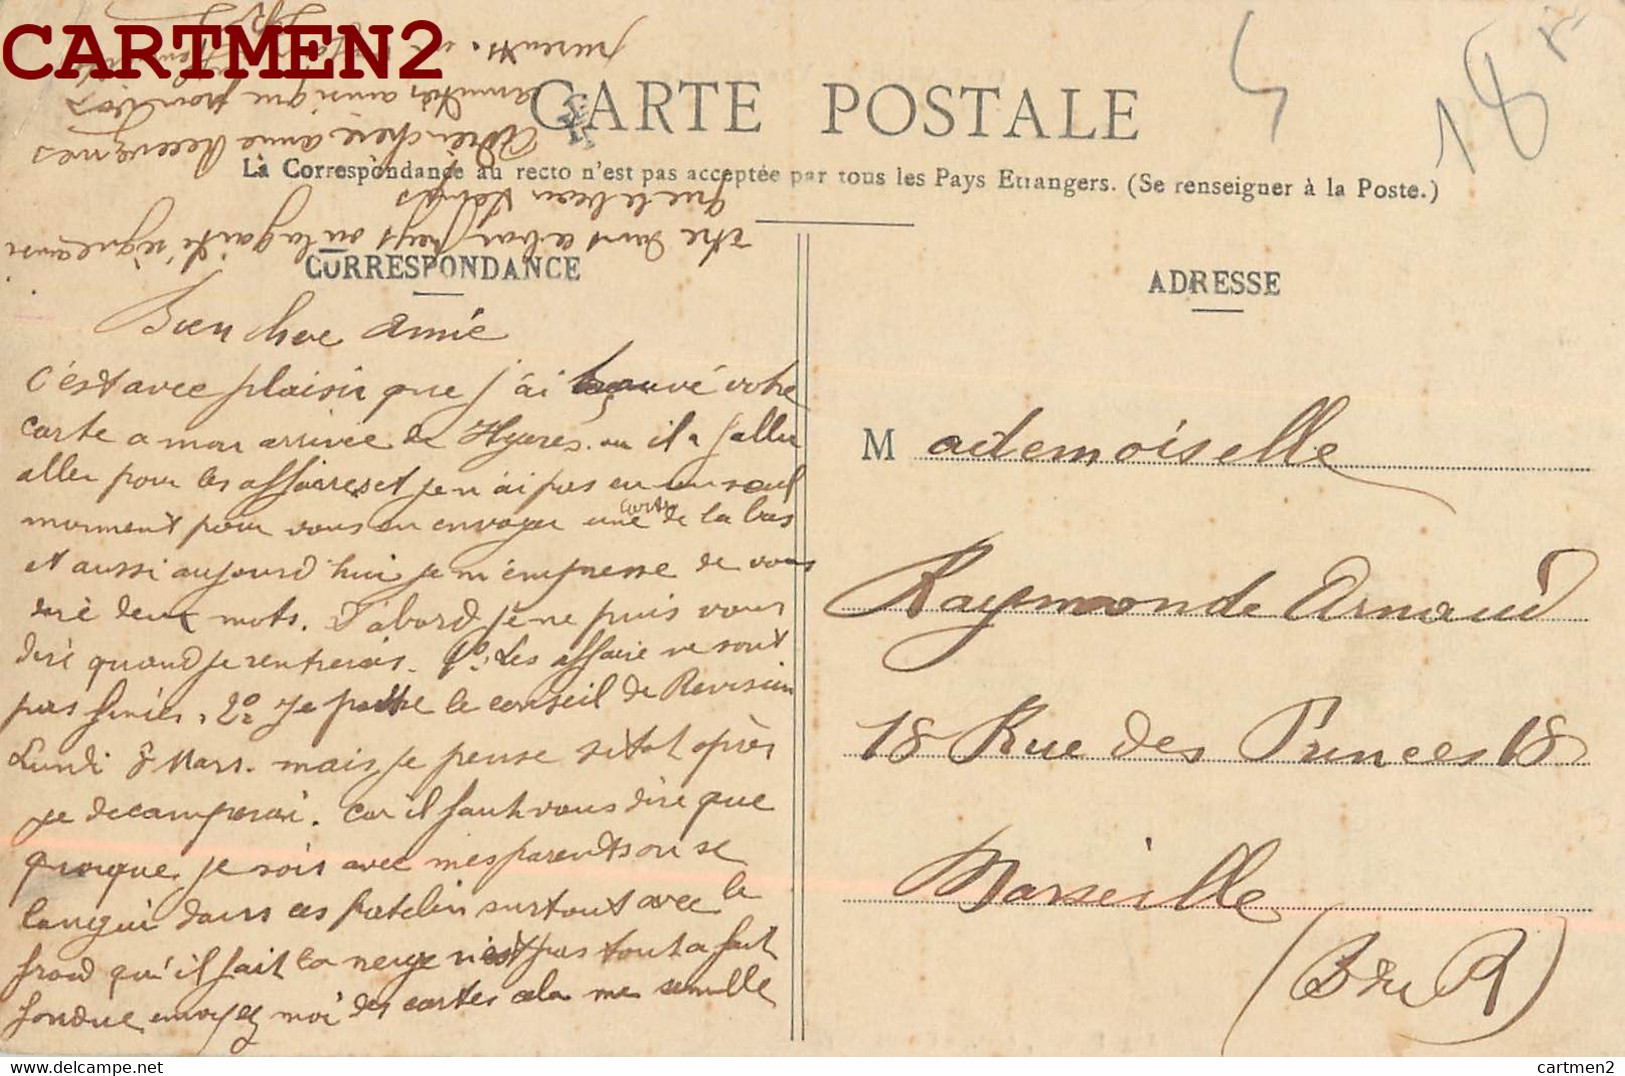 CARTMEN2
CARTE POSTALE
La Correspondance au recto n'est pas acceptée par tous les Pays Etrangers. (Se renseigner à la Poste.)
CORRESPONDANCE
Bien chere amie
C'est avec plaisir que j'ai trouvé votre
carte a mon arrivee de Hyeres. ou il a fallu
aller pour les affaires et je n'ai pas eu un seul
momment pour vous en envoyer une carte de la bas
et aussi aujourd'hui je m'empresse de vous
dire deux mots. D'abord je ne puis vous
dire quand je rentrerais. 1º: Les affaire ne sont
pas finies. 2º Je passe le conseil de Revision
Lundi 8 Mars. mais je pense sitot après
je decamperai. Car il faut vous dire que
quoique je sois avec mes parents on se
langui dans ces patelin surtout avec le
froid qu'il fait la neige n'est pas tout a fait
fondue envoyez moi des cartes cela me semble
être dans ce bon pays ou la gaité règne ainsi
que le beau temps
chere amie Recevez mes
amitiés ainsi que pour vos
parents.
ADRESSE
Mademoiselle
Raymonde Arnaud
18 Rue des Princes 18
Marseille
(B du R)
18
cartmen2